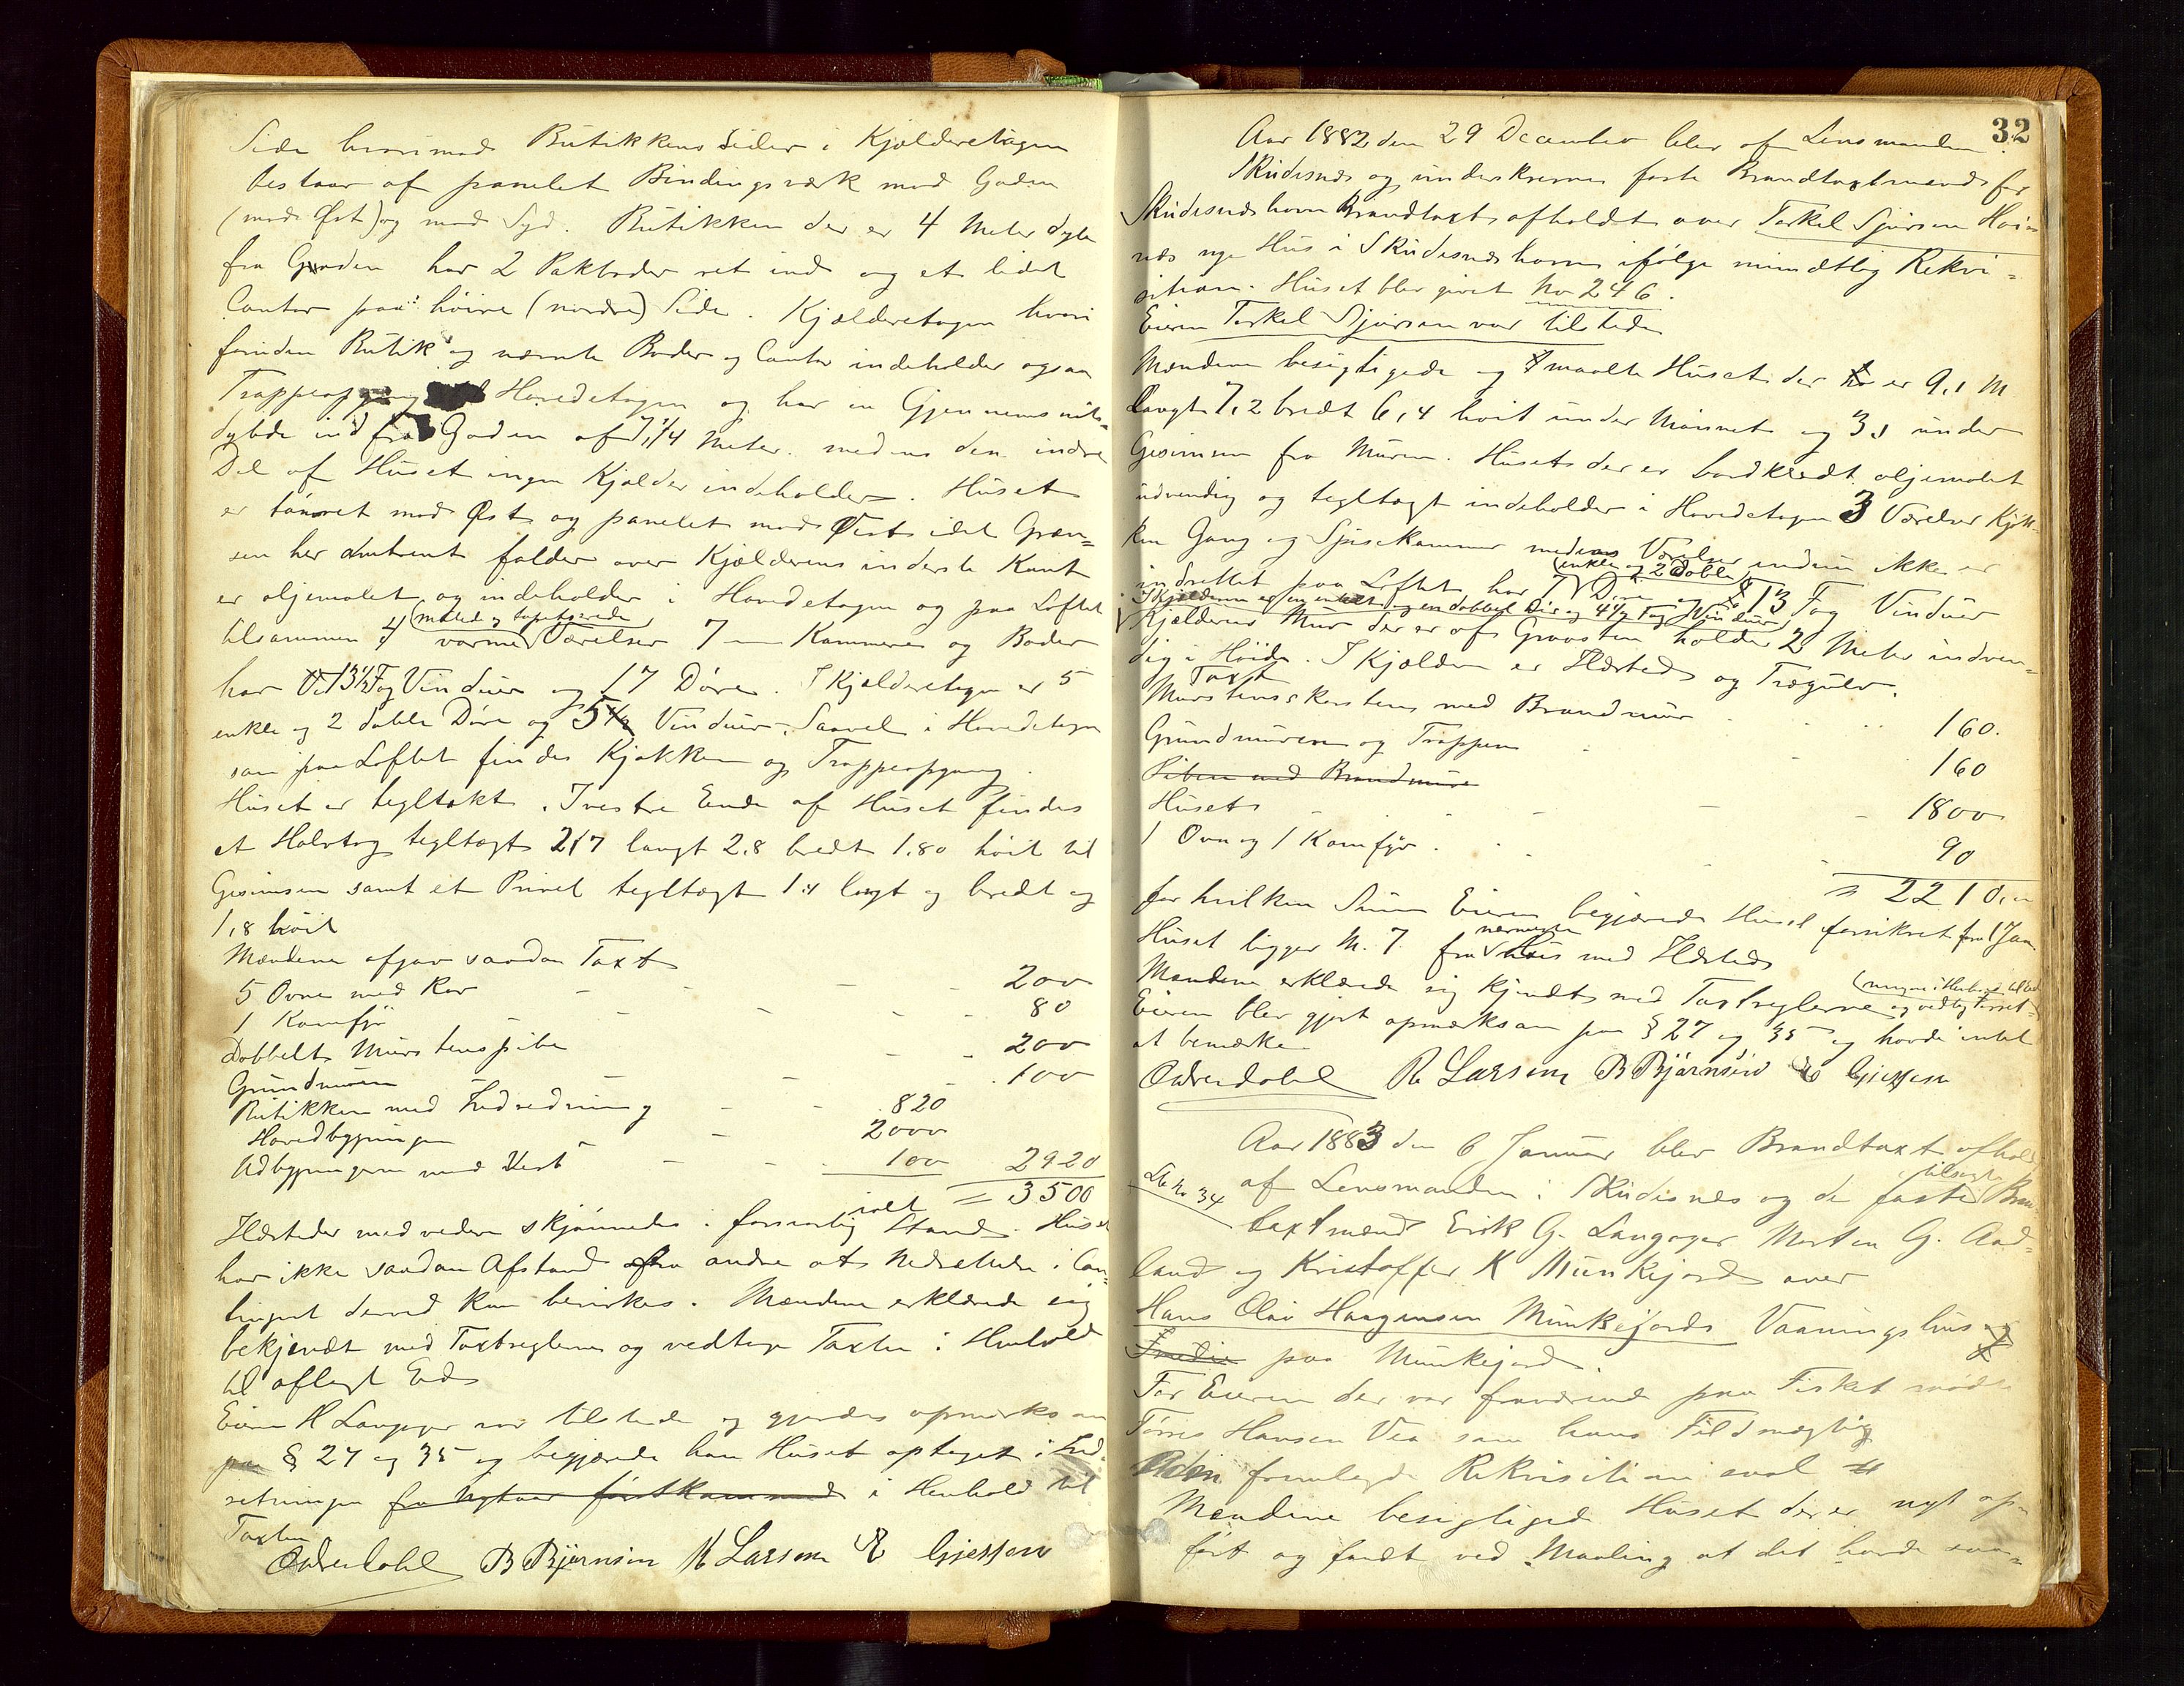 Side hvorimod Butikkens Sider i Kjælderetagen
bestaar af panelet Bindingsværk mod Gaden
(mod Øst) og mod Syd. Butikken der er 4 Meter dyb
fra Gaden har 2 Pakboder ret ind og et lidet
Contor paa høire (nordre) Side. Kjælderetagen hvori
foruden Butik og nævnte Boder og Contor indeholder ogsaa
Trappeopgang til Hovedetagen og har en Gjennemsnits-
dybde ind fra Gaden af 7,4 Meter. medens den indre
Del af Huset ingen Kjælder indeholder. Huset
er tømret mod Øst og panelet mod Vest idet Græn-
sen her omtrent falder over Kjælderens inderste Kant
er oljemalet og indeholder i Hovedetagen og paa Loftet
(malede og tapetserede)
tilsammen 4 varme Værelser 7 Kammere og Boder
har 13½ Fag Vinduer og 17 Døre. I Kjælderetagen er 5
enkle og 2 doble Døre og 5½ Vinduer. Saavel i Hovedetagen
som paa Loftet findes Kjøkken og Trappeopgang.
Huset er tegltækt. I vestre Ende af Huset findes
et Halvtag tegltægt 2,7 langt 2,8 bredt 1,80 høit til
Gesimsen samt et Privet tegltægt 1,4 langt og bredt og
1,8 høit
Mændene afgav saadan Taxt
5 Ovne med Rør 200
1 Komfyr 80
Dobbelt Murstenspibe 200
Grundmuren 100
Butikken med Indredning 820
Hovedbygningen 2000
Udbygningen mod Vest 100 2920
ialt = 3500
Ildsteder med videre skjønnedes i forsvarlig Stand. Huset
har ikke saadan Afstand fra andre at Nedsættelse i Con-
tingent derved kan bevirkes. Mændene erklærede sig
bekjendt med Taxtreglerne og vedtog Taxten i Henhold
til aflagt Ed
Eieren H Langager var tilstede og gjordes opmærksom
paa § 27 og 35 og begjærede han Huset optaget i Ind-
retningen fra Nytaar førstkommende i Henhold til
Taxten
B Bjørnsen R Larsen E Gjessen
32
Aar 1882 den 29 December blev af Lensmanden i
Skudesnæs og underskrevne faste Brandtaxtmænd for
Skudesnæshavn Brandtaxt afholdt over Torkel Sjursen Høi-
næs nye Hus i Skudesnæshavn ifølge mundtlig Rekvi-
sition. Huset blev givet No 246.
Eieren Torkel Sjursen var tilstede
Mændene besigtigede og maalte Huset der er 9,1 M
langt 7,2 bredt 6,4 høit under Mønnet og 3,1 under
Gesimsen fra Muren. Huset der er bordklædt oljemalet
udvendig og tegltægt indeholder i Hovedetagen 3 Værelser Kjøk-
ken Gang og Spisekammer medens Værelser endnu ikke er
(enkle og 2 doble)
indrettet paa Loftet har 7 Døre og 13 Fag Vinduer
I Kjælderen er en enkelt og en dobbel Dør og 4½ Fag Vinduer
Kjælderens Mur der er af Graasten holder 2 Meter indven-
dig i Høide. I Kjælderen er Ildsted og Trægulv.
Taxt
Murstensskorsten med Brandmur 160.
Grundmuren og Trappen 160
Piben med Brandmur
Huset 1800
1 Ovn og 1 Komfyr 90
= 2210,00
for hvilken Sum Eieren begjærede Huset forsikret fra 1 Jan.
Huset ligger M. 7 fra nærmeste Huus med Ildsted
Mændene erklærede sig kjendt med Taxtreglerne og vedtog Taxten
Eieren blev gjort opmærksom paa § 27 og 35 og havde intet
at bemærke
R Larsen B Bjørnsen E Gjessen
Aar 1883 den 6 Januar blev Brandtaxt afholdt
Lb No 34
af Lensmanden i Skudesnes og de faste tilsagte Brand-
taxtmænd Erik G. Langager Morten G. Aad-
land og Kristoffer K Munkejord over
Hans Olai Haagensen Munkejords Vaaningshus og
paa Munkejord.
For Eieren der var fraværende paa Fisket mødte
Tørres Hansen Vea som hans Fuldmægtig
Uden fremlagde Rekvisition
Mændene besigtigede Huset der er nyt op-
ført og fandt ved Maaling at det havde saa-